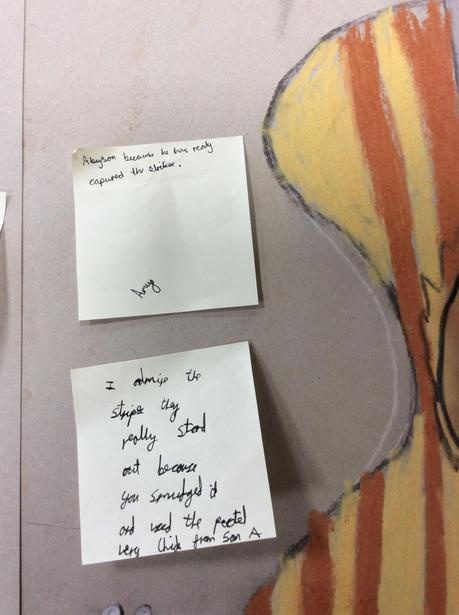 because he has really
capured the
Amy
I admire the
stripes they
really stood
out because
you smudged it
and used the pastel
very thick from Son A